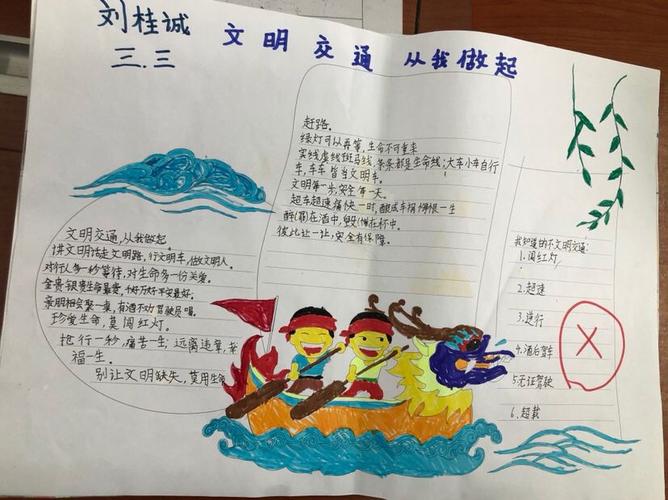 刘桂诚
三.三
文明交通 从我做起
赶路。
绿灯可以再等,生命不可重来
实线虚线斑马线,条条都是生命线;大车小车自行
车,车车皆当文明车。
文明第一步,安全第一关。
超车超速痛快一时,酿成车祸悔恨一生
醉(罪)在酒中,毁(悔)在杯中。
彼此让一让,安全有保障。
文明交通,从我做起。
讲文明话走文明路,行文明车,做文明人。
对行人多一秒等待,对生命多一份关爱。
金贵银贵生命最贵,千好万好平安最好。
亲朋相会聚一桌,有酒不劝驾驶员喝。
珍爱生命,莫闯红灯。
抢行一秒,痛苦一生;远离违章,幸
福一生。
别让文明缺失,莫用生命
我知道的不文明交通:
1.闯红灯
2.超速
3.逆行
4.酒后驾车
5.无证驾驶
6.超载